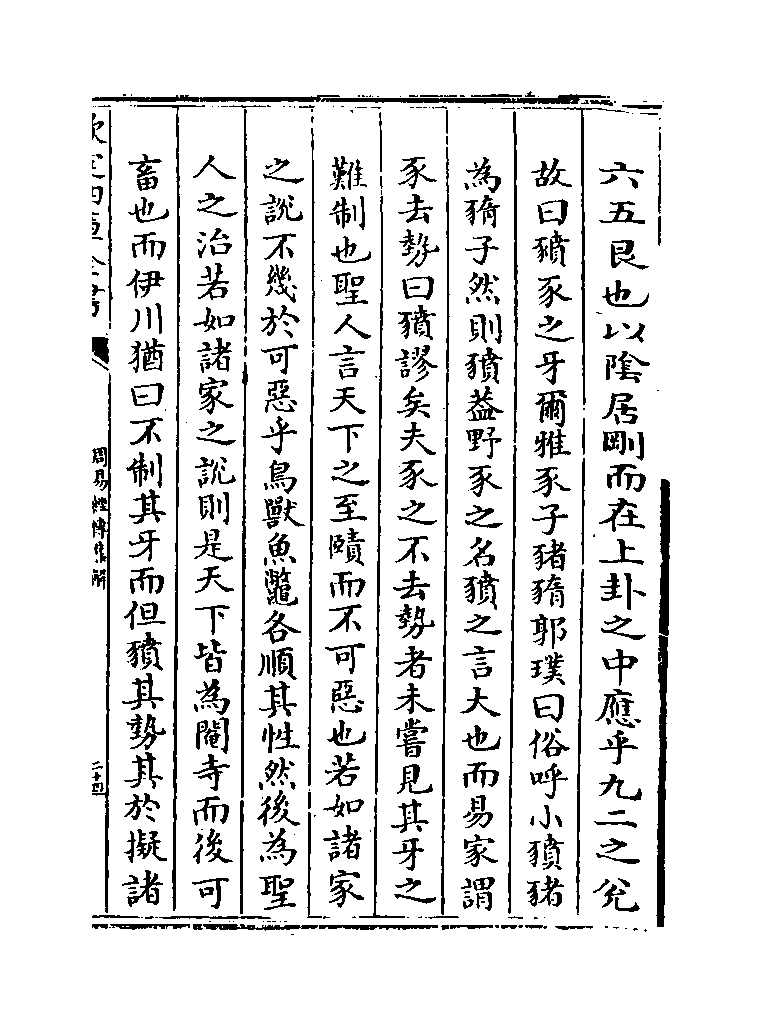 六五艮也以陰居剛而在上卦之中應乎九二之兊
故曰豶豕之牙爾雅豕子豬豶郭璞曰俗呼小豶豬
為豬子然則豶葢野豕之名豶之言大也而易家謂
豕去勢曰豶謬矣夫豕之不去勢者未嘗見其牙之
難制也聖人言天下之至賾而不可惡也若如諸家
之說不幾於可惡乎鳥獸魚鼈各順其性然後為聖
人之治若如諸家之說則是天下皆為閹寺而後可
畜也而伊川猶曰不制其牙而但豶其勢其於擬諸
欽定四庫全書
周易經傳集解
二十四